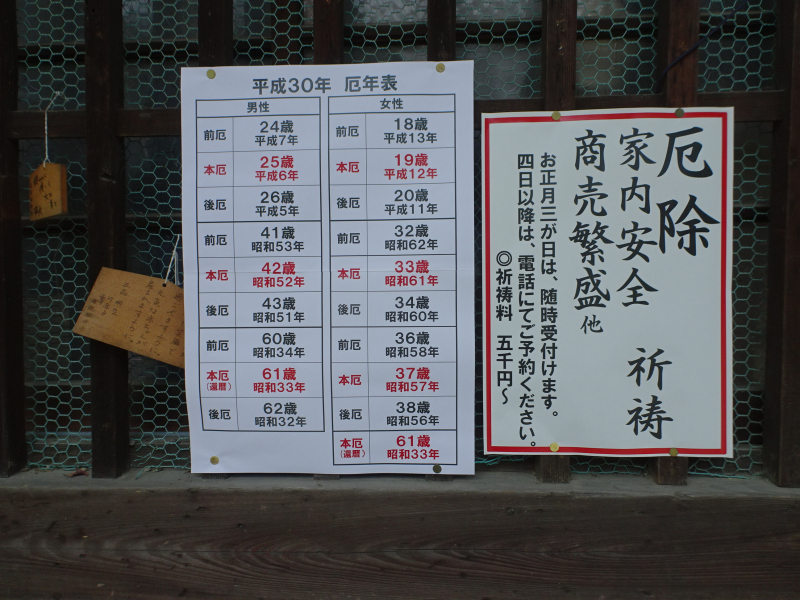 平成30年 厄年表
男性
前厄 24歳 平成7年
本厄 25歳 平成6年
後厄 26歳 平成5年
前厄 41歳 昭和53年
本厄 42歳 昭和52年
後厄 43歳 昭和51年
前厄 60歳 昭和34年
本厄(還暦) 61歳 昭和33年
後厄 62歳 昭和32年
女性
前厄 18歳 平成13年
本厄 19歳 平成12年
後厄 20歳 平成11年
前厄 32歳 昭和62年
本厄 33歳 昭和61年
後厄 34歳 昭和60年
前厄 36歳 昭和58年
本厄 37歳 昭和57年
後厄 38歳 昭和56年
本厄(還暦) 61歳 昭和33年
厄除
家内安全 祈祷
商売繁盛他
お正月三が日は、随時受付けます。
四日以降は、電話にてご予約ください。
◎祈祷料 五千円～